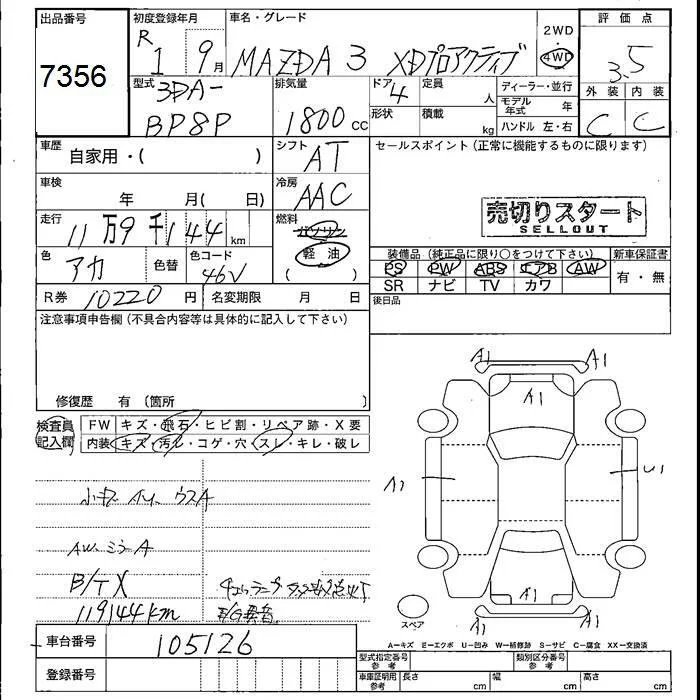 出品番号
7356
初度登録年月
R 1 9月
車名・グレード
MAZDA 3 XDプロアクティブ
2WD
・
4WD
評価点
3.5
外装 内装
C C
型式
3DA-
BP8P
排気量
1800 cc
ドア 4
定員
人
形状
積載
kg
ディーラー・並行
モデル年式 年
ハンドル 左・右
車歴
自家用・( )
シフト
AT
セールスポイント(正常に機能するものに限ります)
売切りスタート
SELLOUT
車検
年 月( 日)
冷房
AAC
走行
11万9千144km
燃料
ガソリン
軽油
( )
色
アカ
色替
色コード
46V
装備品(純正品に限り○をつけて下さい)
新車保証書
PS PW ABS エアB AW
SR ナビ TV カワ
有・無
R券 10220 円
名変期限 月 日
後日品
注意事項申告欄(不具合内容等は具体的に記入して下さい)
修復歴 有〔箇所 〕
検査員記入欄
FW キズ・飛石・ヒビ割・リペア跡・X要
内装 キズ・汚レ・コゲ・穴・スレ・キレ・破レ
AW ミラーA
B/T X
119144km
車台番号 105126
登録番号
A1 A1
A1
A1 U1
A1
A1 A1
スペア
A=キズ E=エクボ U=凹み W=補修跡 S=サビ C=腐食 XX=交換済
型式指定番号 参考
類別区分番号 参考
車庫証明用 参考
長さ cm
幅 cm
高さ cm